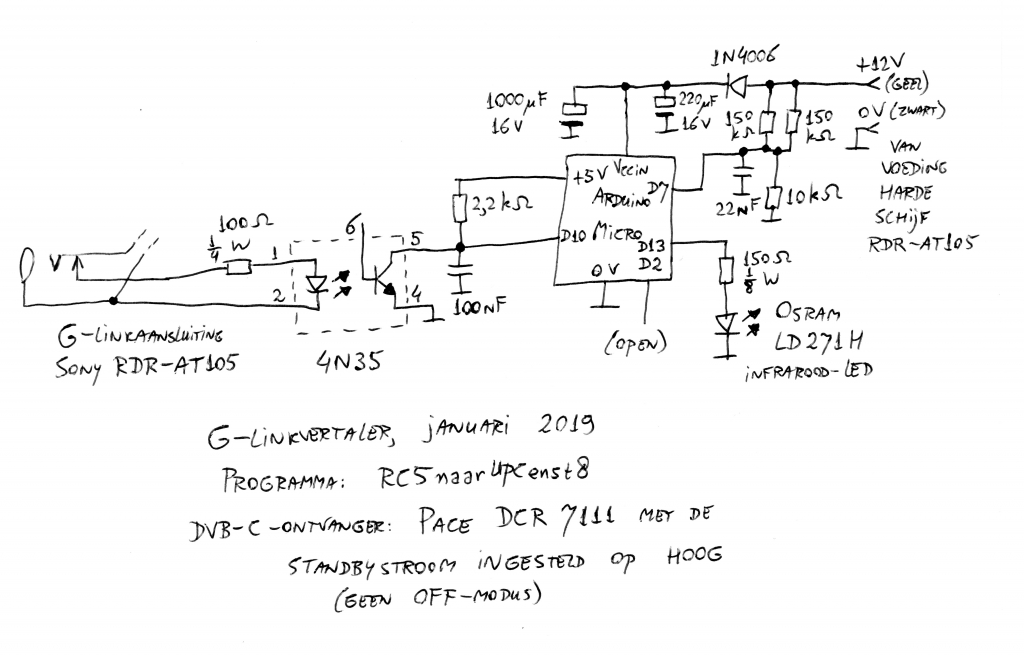 1N4006
+12V
(GEEL)
1000µF
16V
220µF
16V
150
kΩ
150
kΩ
0V (ZWART)
VAN
VOEDING
HARDE
SCHIJF
RDR-AT105
+5V VCCIN
ARDUINO D7
D10 MICRO
D13
D2
0V
22nF
10kΩ
2,2kΩ
100Ω
1/4 W
V
1
2
6
5
4
100NF
150Ω
1/8 W
(OPEN)
OSRAM
LD271H
INFRAROOD-LED
G-LINKAANSLUITING
SONY RDR-AT105
4N35
G-LINKVERTALER, JANUARI 2019
PROGRAMMA: RC5naarUPCenst8
DVB-C-ONTVANGER: PACE DCR 7111 MET DE
STANDBYSTROOM INGESTELD OP HOOG
(GEEN OFF-MODUS)